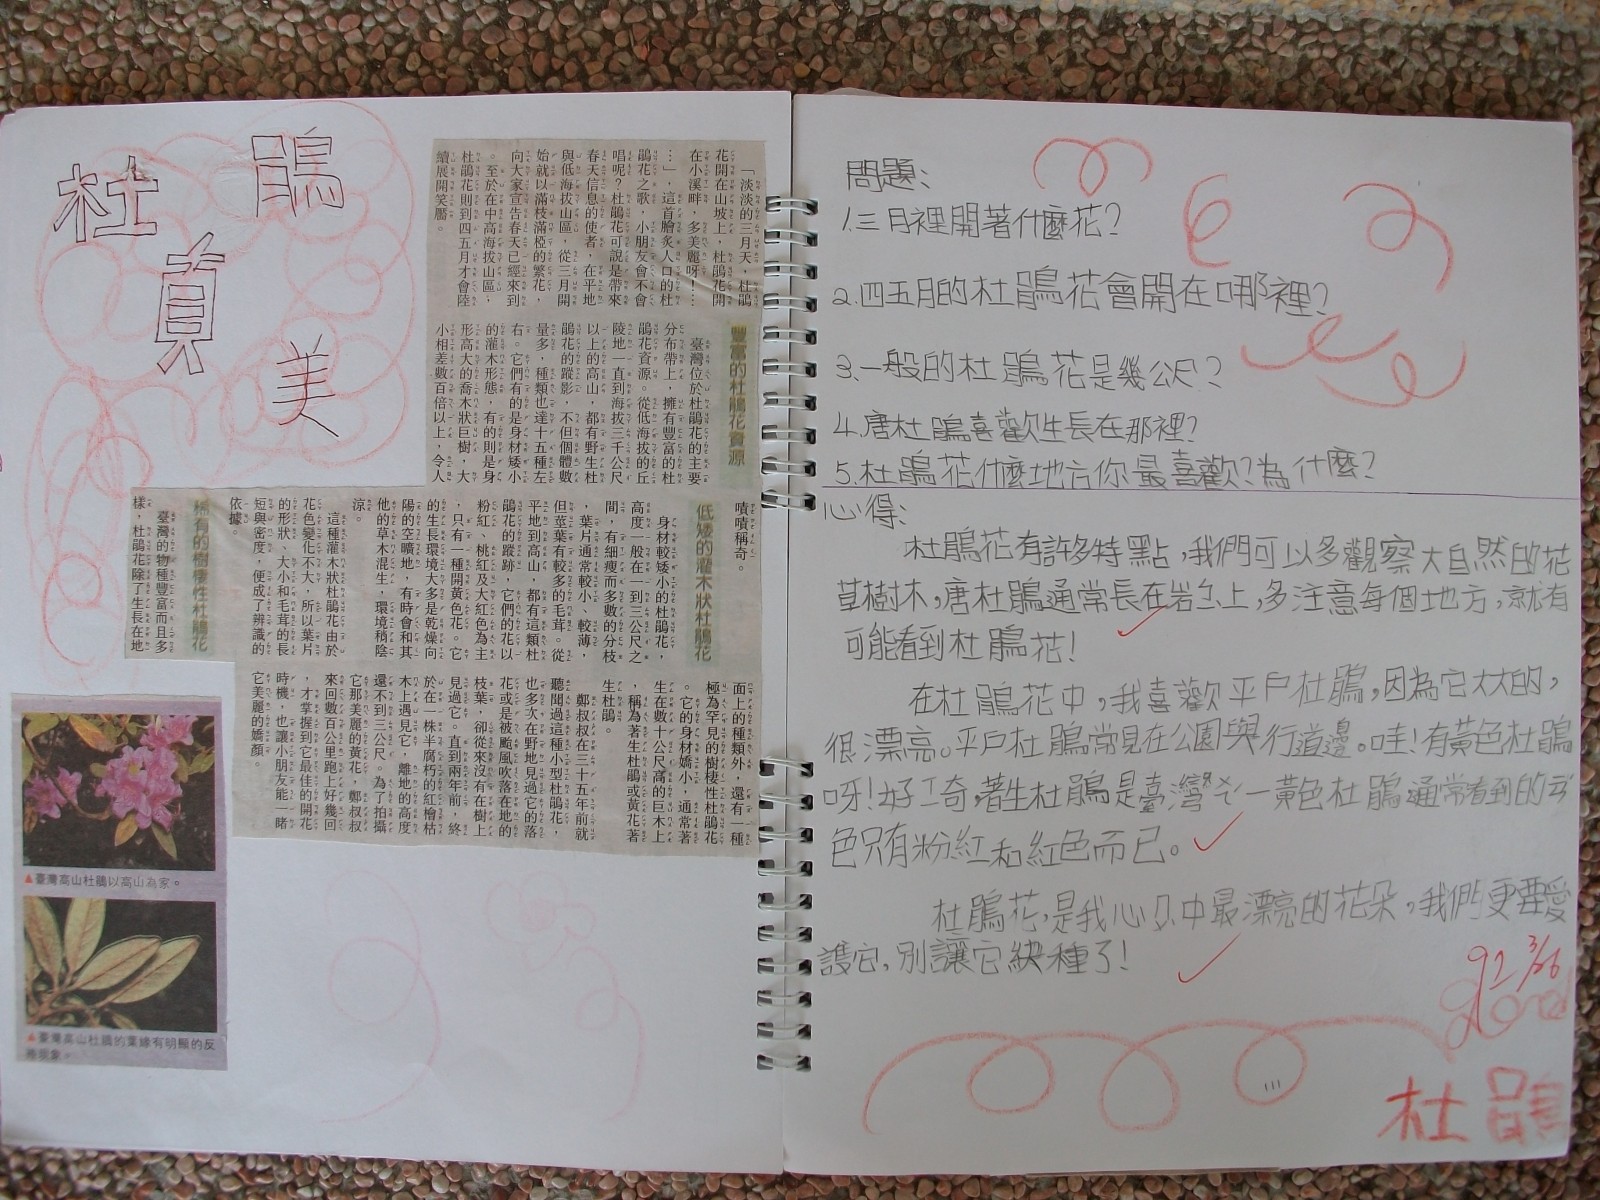 杜鵑
真美
「淡淡的三月天,杜鵑
花開在山坡上,杜鵑花開
在小溪畔,多美麗呀!…
…」,這首膾炙人口的杜
鵑花之歌,小朋友會不會
唱呢?杜鵑花可說是帶來
春天信息的使者,在平地
與低海拔山區,從三月開
始就以滿枝滿椏的繁花,
向大家宣告春天已經來到
。至於在中高海拔山區,
杜鵑花則到四五月才會陸
續展開笑靨。
豐富的杜鵑花資源
臺灣位於杜鵑花的主要
分布帶上,擁有豐富的杜
鵑花資源。從低海拔的丘
陵地一直到海拔三千公尺
以上的高山,都有野生杜
鵑花的蹤影,不但個體數
量多,種類也達十五種左
右。它們有的是身材矮小
的灌木形態,有的則是身
形高大的喬木狀巨樹,大
小相差數百倍以上,令人
嘖嘖稱奇。
低矮的灌木狀杜鵑花
身材較矮小的杜鵑花,
高度一般在一到三公尺之
間,有細瘦而多數的分枝
,葉片通常較小、較薄,
但莖葉有較多的毛茸。從
平地到高山,都有這類杜
鵑花的蹤跡,它們的花以
粉紅、桃紅及大紅色為主
,只有一種開黃色花。它
的生長環境大多是乾燥向
陽的空曠地,有時會和其
他的草木混生,環境稍陰
涼。
這種灌木狀杜鵑花由於
花色變化不大,所以葉片
的形狀、大小和毛茸的長
短與密度,便成了辨識的
依據。
稀有的樹棲性杜鵑花
臺灣的物種豐富而且多
樣,杜鵑花除了生長在地
面上的種類外,還有一種
極為罕見的樹棲性杜鵑花
。它的身材嬌小,通常著
生在數十公尺高的巨木上
,稱為著生杜鵑或黃花著
生杜鵑。
鄭叔叔在三十五年前就
聽聞過這種小型杜鵑花,
也多次在野地見過它的落
花或是被颱風吹落在地的
枝葉,卻從來沒有在樹上
見過它。直到兩年前,終
於在一株半腐朽的紅檜枯
木上遇見它,離地的高度
還不到三公尺。為了拍攝
它那美麗的黃花,鄭叔叔
來回數百公里跑上好幾回
,才掌握到它最佳的開花
時機,也讓小朋友能一睹
它美麗的嬌顏。
▲臺灣高山杜鵑以高山為家。
▲臺灣高山杜鵑的葉緣有明顯的反
捲現象。
問題:
1.三月裡開著什麼花?
2.四五月的杜鵑花會開在哪裡?
3.一般的杜鵑花是幾公尺?
4.唐杜鵑喜歡生長在那裡?
5.杜鵑花什麼地方你最喜歡?為什麼?
心得:
杜鵑花有許多特點,我們可以多觀察大自然的花
草樹木,唐杜鵑通常長在岩石上,多注意每個地方,就有
可能看到杜鵑花!
在杜鵑花中,我喜歡平戶杜鵑,因為它大大的,
很漂亮。平戶杜鵑常見在公園與行道邊。哇!有黃色杜鵑
呀!好ㄒ奇,著生杜鵑是臺灣ㄉ一黃色杜鵑通常看到的ㄊ
色只有粉紅和紅色而已。
杜鵑花,是我心目中最漂亮的花朵,我們更要愛
護它,別讓它絕種了!
92 3/26
Good
杜鵑